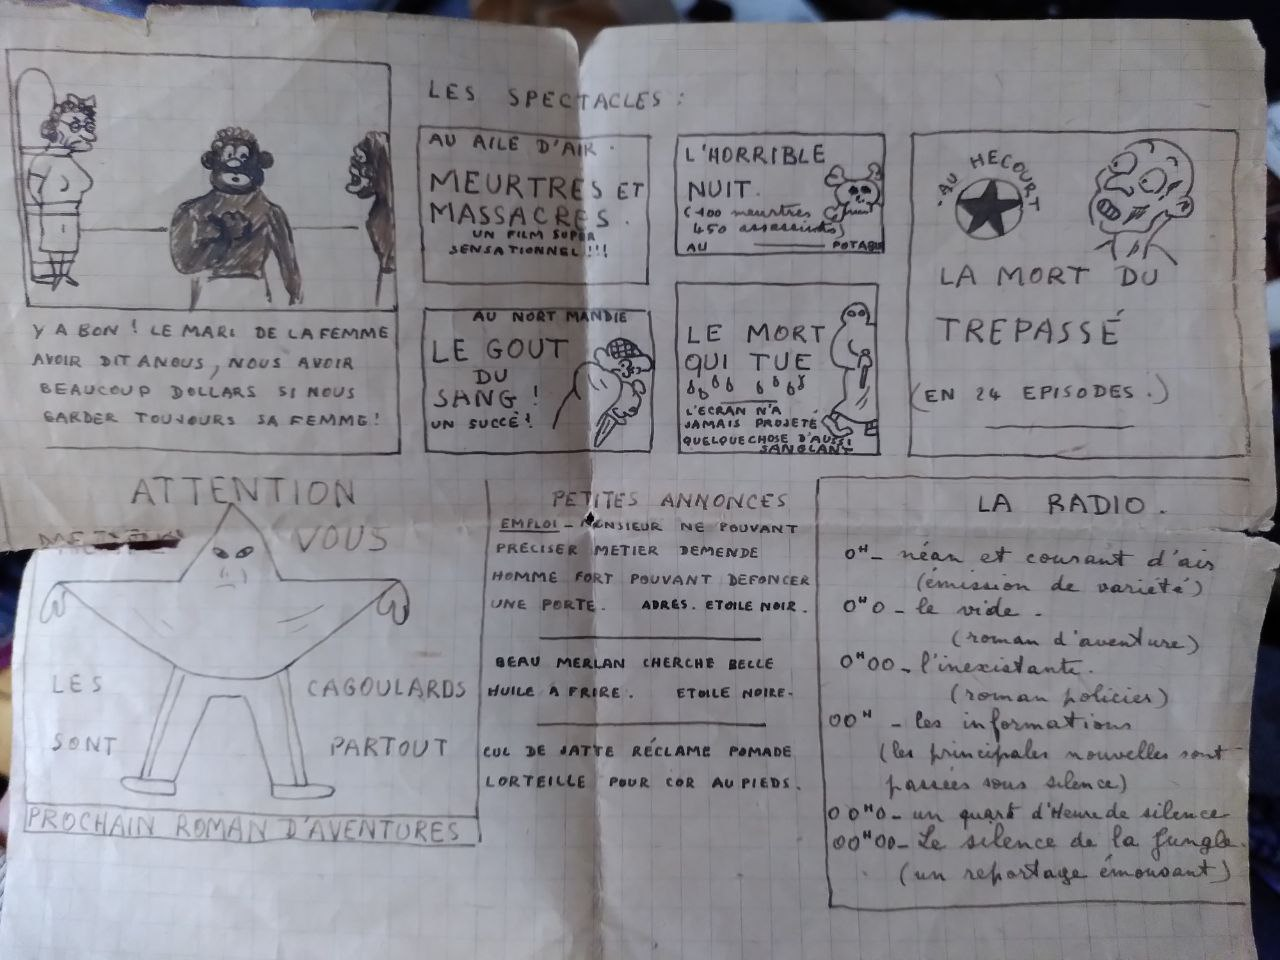 Y A BON ! LE MARI DE LA FEMME
AVOIR DIT A NOUS, NOUS AVOIR
BEAUCOUP DOLLARS SI NOUS
GARDER TOUJOURS SA FEMME !
LES SPECTACLES :
AU AILE D'AIR.
MEURTRES ET
MASSACRES.
UN FILM SUPER
SENSATIONNEL !!!
L'HORRIBLE
NUIT.
(400 meurtres
450 assassins)
AU POTABLE
AU NORT MANDIE
LE GOUT
DU
SANG !
UN SUCCÈ !
LE MORT
QUI TUE
L'ECRAN N'A
JAMAIS PROJETÉ
QUELQUE CHOSE D'AUSSI
SANGLANT
AU HECOURT
LA MORT DU
TREPASSÉ
(EN 24 EPISODES.)
ATTENTION
VOUS
LES CAGOULARDS
SONT PARTOUT
PROCHAIN ROMAN D'AVENTURES
PETITES ANNONCES
EMPLOI - MONSIEUR NE POUVANT
PRECISER METIER DEMENDE
HOMME FORT POUVANT DEFONCER
UNE PORTE. ADRES. ETOILE NOIR.
BEAU MERLAN CHERCHE BELLE
HUILE A FRIRE. ETOILE NOIRE.
CUL DE JATTE RÉCLAME POMADE
LORTEILLE POUR COR AU PIEDS.
LA RADIO.
0H - néan et courant d'air
(émission de variété)
0H0 - le vide.
(roman d'aventure)
0H00 - l'inexistante.
(roman policier)
00H - les informations
(les principales nouvelles sont
passées sous silence)
00H0 - un quart d'Heure de silence
00H00 - Le silence de la Jungle.
(un reportage émouvant)